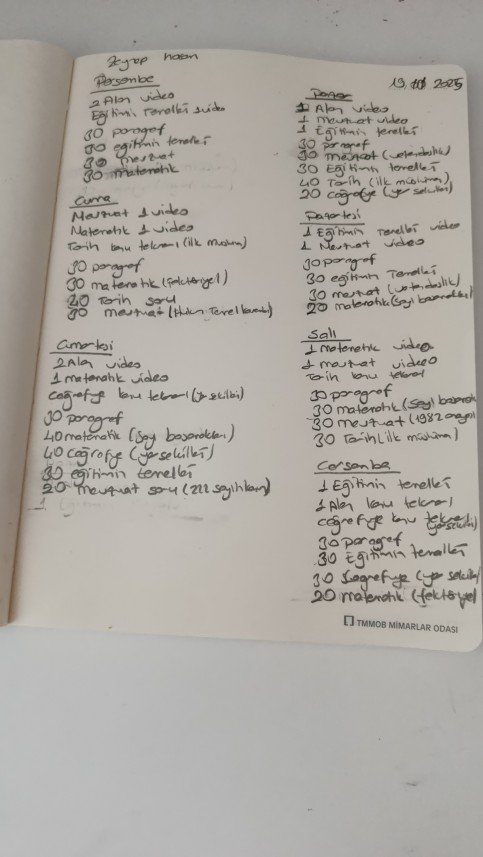 Zeynep
Perşembe
2 Alan video
Eğitimin Temelleri 1 video
30 paragraf
30 eğitimin temelleri
30 mevzuat
30 matematik
Cuma
Mevzuat 1 video
Matematik 1 video
Tarih konu tekrarı (ilk müslüman)
30 paragraf
30 matematik (faktöriyel)
20 Tarih soru
30 mevzuat (Hukukun Temel
Cumartesi
2 Alan video
1 matematik video
coğrafya konu tekrarı (yer şekilleri)
30 paragraf
40 matematik (sayı basamakları)
40 coğrafya (yer şekilleri)
30 eğitimin temelleri
20 mevzuat soru (222 sayılı kanun)
19. 2025
Pazar
1 Alan video
1 mevzuat video
1 Eğitimin temelleri
30 paragraf
30 mevzuat (vatandaşlık)
30 Eğitimin temelleri
40 Tarih (ilk müslüman)
20 coğrafya (yer şekilleri)
Pazartesi
1 Eğitimin Temelleri video
1 Mevzuat video
30 paragraf
30 eğitimin Temelleri
30 mevzuat (vatandaşlık)
20 matematik (sayı basamakları)
Salı
1 matematik video
1 mevzuat video
Tarih konu tekrarı
30 paragraf
30 matematik (sayı basamak
30 mevzuat (1982 anayasa
30 Tarih (ilk müslüman)
Çarşamba
1 Eğitimin temelleri
1 Alan konu tekrarı
coğrafya konu tekrarı (yer şekilleri)
30 paragraf
30 Eğitimin temelleri
30 coğrafya (yer şekilleri
20 matematik (faktöriyel
TMMOB MİMARLAR ODASI